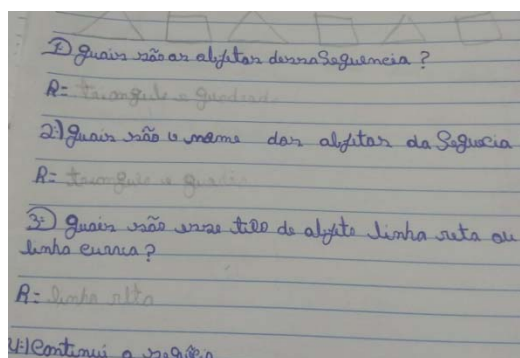 1) Quais são as abjetas dessa Sequencia?
R= triangulo e quadrado
2:) Quais são o nome das abjetas da Sequcia
R= triangulo e quadra
3:) Quais são esse tipo de abjeto linha reta ou
linha curva?
R= linha reta
4:) Continui a